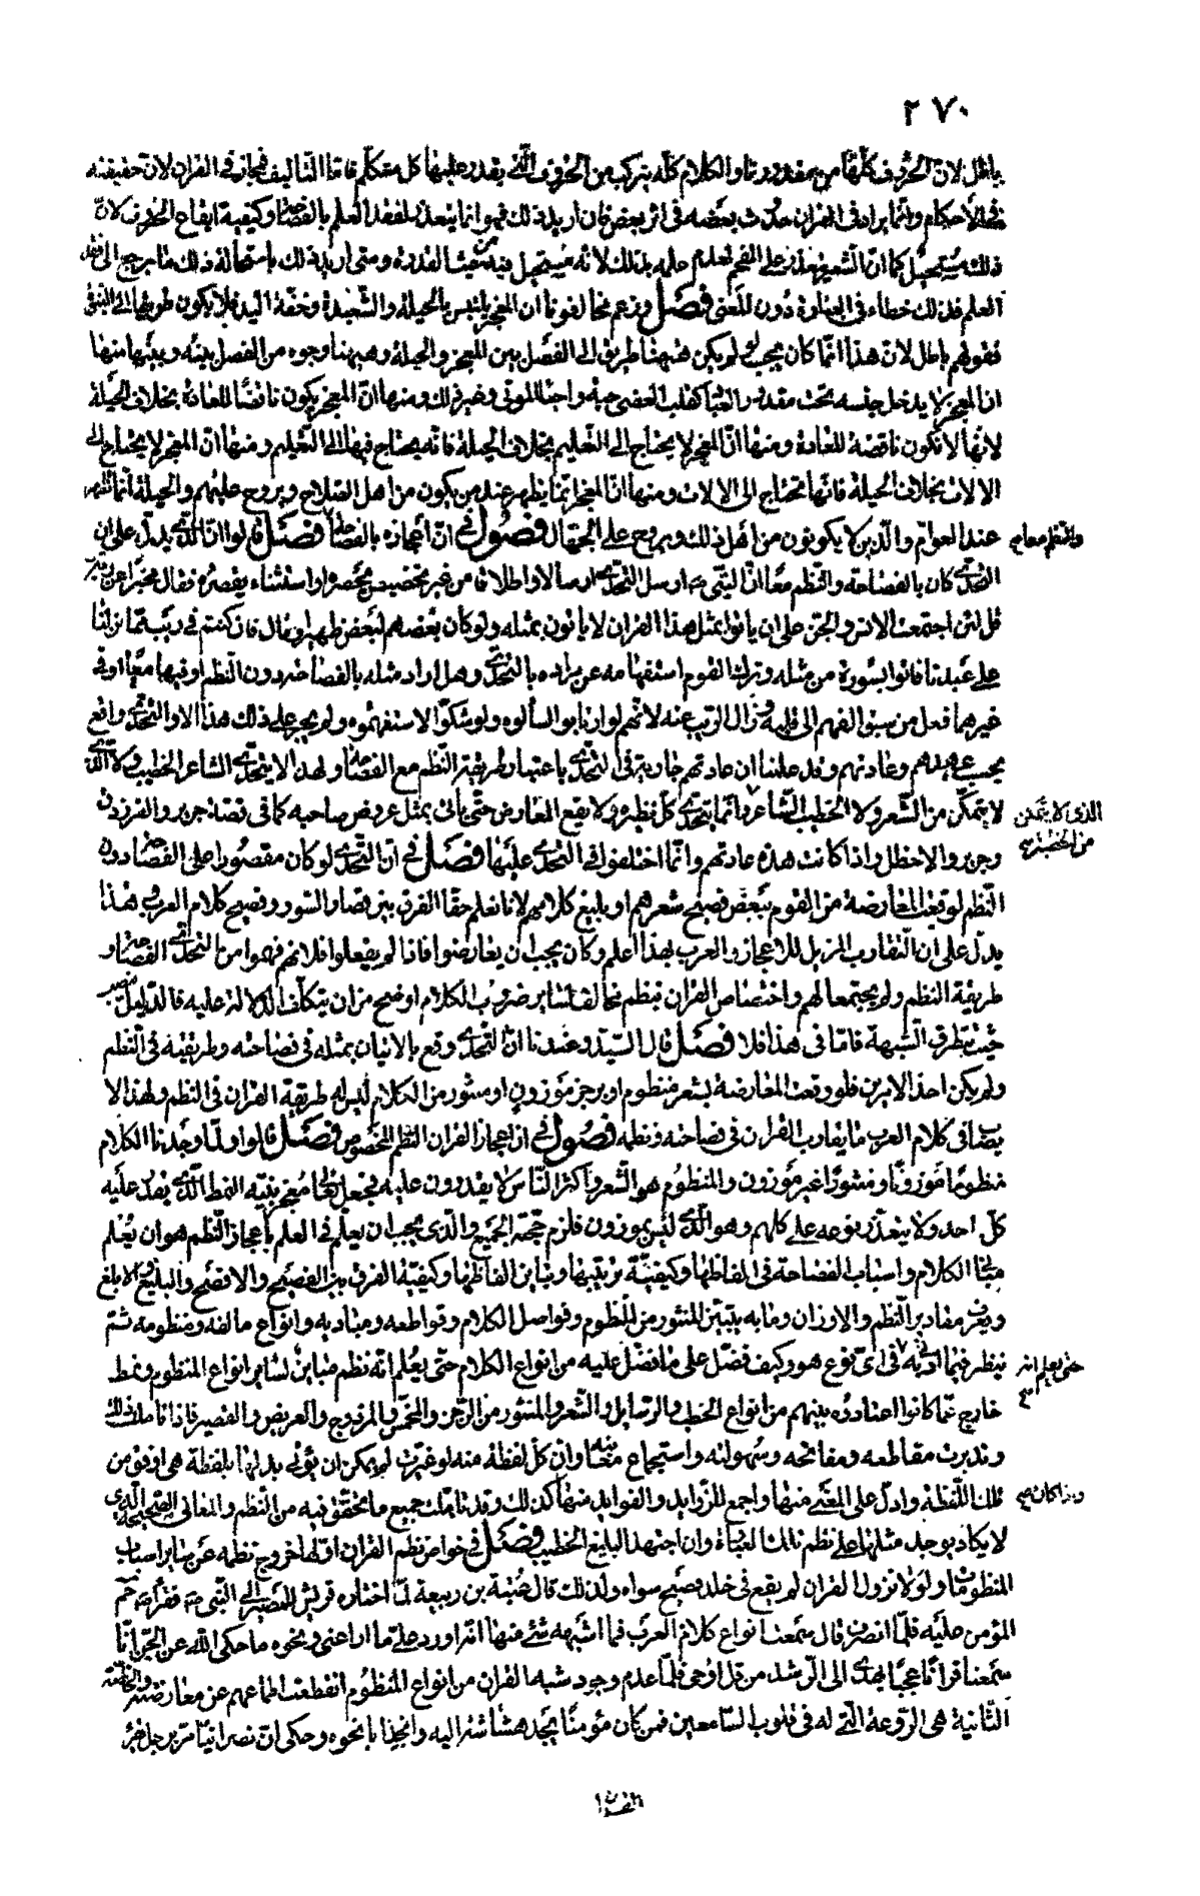 ٢٧٠
باطل لان الحروف كلها من مقدورنا والكلام كله يتركب من الحروف التي يقدر عليها كل متكلم فاما التأليف فمجاز في القران لان حقيقته
في الأحكام وانما يراد في القران حدوث بعضه في اثر بعض فان اريد ذلك فهو انما يتعذر لفقد العلم بالفصاحة وكيفية ايقاع الحروف لا ان
ذلك مستحيل كما ان الشعر يتعذر على المفحم لعدم علمه بذلك لا انه مستحيل منه من حيث القدرة ومتى اريد بذلك باستحالة ذلك ما يرجع الى فقد
العلم فذلك خطاء في العبارة دون المعنى فصل وزعم مخالفونا ان المعجز يلتبس بالحيلة والشعبذة وخفة اليد فلا يكون طريقا الى النبوة
فقولهم باطل لان هذا انما كان يجب لو لم يكن هيهنا طريق الى الفصل بين المعجز والحيلة وهيهنا وجوه من الفصل بينه وبينها منها
ان المعجز لا يدخل جنسه تحت مقدور العباد كقلب العصى حية واحياء الموتى وغير ذلك ومنها ان المعجز يكون ناقضا للعادة بخلاف الحيلة
لانها لا تكون ناقضة للعادة ومنها ان المعجز لا يحتاج الى التعليم بخلاف الحيلة فانه يحتاج فيها الى التعليم ومنها ان المعجز لا يحتاج الى
الالات بخلاف الحيلة فانها تحتاج الى الالات ومنها ان المعجز انما يظهر عند من يكون من اهل الصلاح ويروج عليهم والحيلة انما تظهر
عند العوام والذين لا يكونون من اهل ذلك ويروج على الجهال فصول في ان اعجازه بالفصاحة فصل قالوا ان الذي يدل على ان
والنظم معا
التحدي كان بالفصاحة والنظم معا ان النبي ص ارسل التحدي ارسالا واطلاقا من غير تخصيص يحصره او استثناء يقصره فقال مخبرا عن ربه
قل لئن اجتمعت الانس والجن على ان ياتوا بمثل هذا القران لا ياتون بمثله ولو كان بعضهم لبعض ظهيرا وقال فان كنتم في ريب مما نزلنا
على عبدنا فاتوا بسورة من مثله وترك القوم استفهامه عن مراده بالتحدي وهل اراد مثله بالفصاحة دون النظم او فيهما معا او في
غيرهما فعل من سبق الفهم الى قلبه وزال الريب عنه لانهم لو ارتابوا لسألوه ولو شكوا لاستفهموه ولم يجر على ذلك هذا الا والتحدي واقع
بحسب عهدهم وعادتهم وقد علمنا ان عادتهم جارية في التحدي باعتبار طريقة النظم مع الفصاحة ولهذا لا يتحدى الشاعر الخطيب
الذي لا يتمكن
لا يتمكن من الشعر ولا الخطيب الشاعر وانما يتحدى كل نظيره ولا يقع المعارض حتى يأتي بمثل عروض صاحبه كما في قصة جرير والفرزدق
من الخطبة
وجرير والاخطل واذا كانت هذه عادتهم وانما اختلفوا في التحدي عليها فصل في ان التحدي لو كان مقصورا على الفصاحة دون
النظم لوقعت المعارضة من القوم ببعض فصيح شعرهم او بليغ كلامهم لانا نعلم حقا الفرق بين قصار السور وفصيح كلام العرب وهذا
يدل على ان التقارب المزيل للاعجاز والعرب بهذا اعلم وكان يجب ان يعارضوا فاذا لم يفعلوا فلانهم فهموا من التحدي الفصاحة و
طريقة النظم ولم يجتمعا لهم واختصاص القران بنظم مخالف لسائر ضروب الكلام اوضح من ان يتكلف الدلالة عليه فالدليل نصب
حيث تطرق الشبهة فاما في هذا فلا فصل قال السيد وعندنا ان التحدي وقع بالاتيان بمثله في فصاحته وطريقته في النظم
ولم يكن احد الامرين فلو وقعت المعارضة بشعر منظوم او برجز موزون او منثور من الكلام ليس له طريقة القران في النظم ولهذا لا
يصاف كلام العرب ما يقارب القران في فصاحته ونظمه فصول في ان اعجاز القران النظم المخصوص فصل قالوا ولما وجدنا الكلام
منظوما موزونا ومنثورا غير موزون والمنظوم هو الشعر واكثر الناس لا يقدرون عليه فجعل تعالى معجز نبيه النمط الذي يقدر عليه
كل احد ولا يتعذر نوعه على كلهم وهو الذي ليس بموزون فلزم حجة الجميع والذي يجب ان يعلم في العلم باعجاز النظم هو ان يعلم
مباني الكلام واسباب الفصاحة في الفاظها وكيفية ترتيبها وتباين الفاظها وكيفية الفرق بين الفصيح والافصح والبليغ والابلغ
ويعرف مقادير النظم والاوزان وما به يتبين المنثور من المنظوم وفواصل الكلام وقواطعه ومباديه وانواع مالفه ومنظومه ثم
ينظر فيما اتى به في اي نوع هو وكيف فضل على ما فضل عليه من انواع الكلام حتى يعلم انه نظم مباين لسائر انواع المنظوم ونمط
حتى يعلم انه
خارج عما كانوا اعتادوه بينهم من انواع الخطب والرسايل والشعر والمنثور من الرجز والمخمس والمزدوج والعريض والقصير فاذا تاملت ذلك
وتدبرت مقاطعه ومفاتحه وسهولته واستجماع معانيه وان كل لفظة منه لو غيرت لم يمكن ان يؤتى بدلها بلفظة هي اوفق من
تلك اللفظة وادل على المعنى منها واجمع للزوايد والفوايد منها كذلك وقد تاملت جميع ما تحقق فيه من النظم والمعاني الصحيحة الذي
واذا كان
لا يكاد يوجد مثلها على نظم تلك العبارة وان اجتهد البليغ الخطيب فصل في خواص نظم القران اولها خروج نظمه عن ساير اسباب
المنظومات ولولا نزول القران لم يقع في خلد فصيح سواه ولذلك قال عتبة بن ربيعة لما اختاره قريش للمصير الى النبي ص فقرأ ص حم
المؤمن عليه فلما انصرف قال سمعت انواع كلام العرب فما اشبهه شئ منها انه اورد على ما راعني ونحوه ما حكى الله عن الجن انا
سمعنا قرانا عجبا يهدي الى الرشد من قل اوحي فلما عدم وجود شبه القران من انواع المنظوم انقطعت اطماعهم عن معارضته والخاصة
الثانية هي الروعة التي له في قلوب السامعين فمن كان مؤمنا يجد هشاشة اليه وانجذابا نحوه وحكى ان نصرانيا مر برجل يقرأ
القران